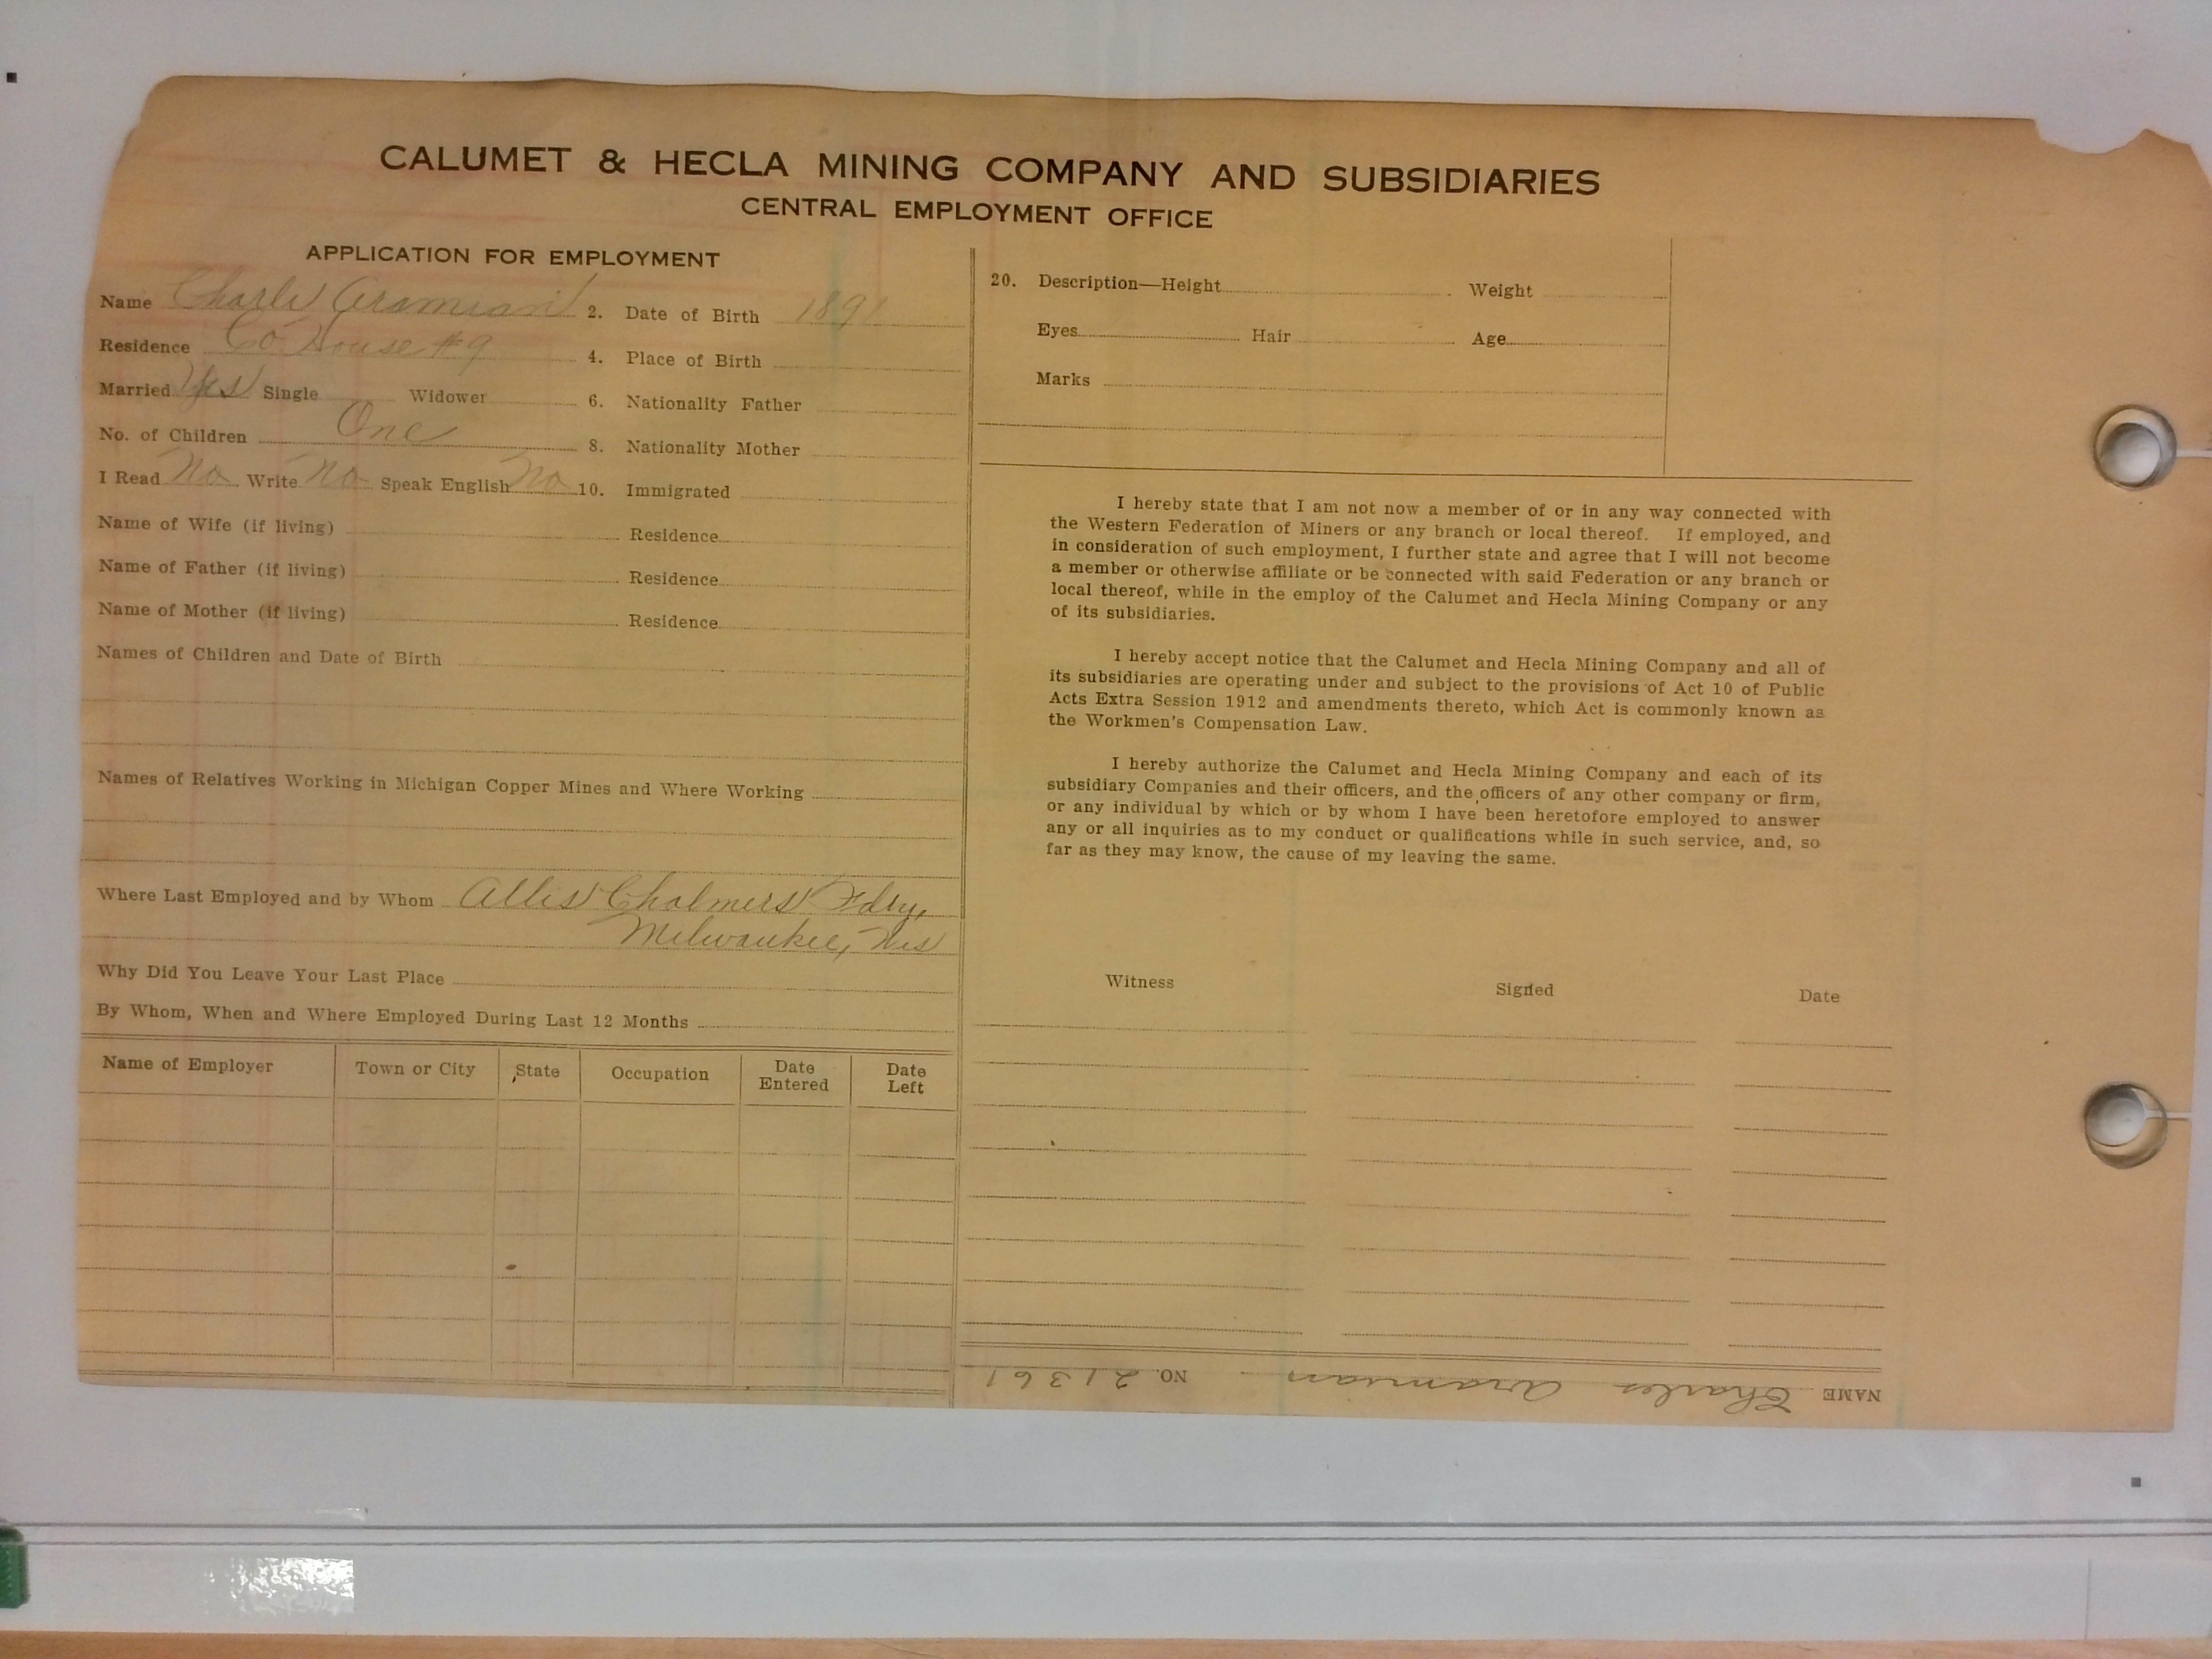 CALUMET & HECLA MINING COMPANY AND SUBSIDIARIES
CENTRAL EMPLOYMENT OFFICE
APPLICATION FOR EMPLOYMENT
Name Charles Aramian 2. Date of Birth 1891
Residence Co House #9 4. Place of Birth
Married Yes Single Widower 6. Nationality Father
No. of Children One 8. Nationality Mother
I Read No Write No Speak English No 10. Immigrated
Name of Wife (if living) Residence
Name of Father (if living) Residence
Name of Mother (if living) Residence
Names of Children and Date of Birth
Names of Relatives Working in Michigan Copper Mines and Where Working
Where Last Employed and by Whom Allis Chalmers Fdry,
Milwaukee, Wis
Why Did You Leave Your Last Place
By Whom, When and Where Employed During Last 12 Months
Name of Employer Town or City State Occupation Date Entered Date Left
20. Description—Height Weight
Eyes Hair Age
Marks
I hereby state that I am not now a member of or in any way connected with
the Western Federation of Miners or any branch or local thereof. If employed, and
in consideration of such employment, I further state and agree that I will not become
a member or otherwise affiliate or be connected with said Federation or any branch or
local thereof, while in the employ of the Calumet and Hecla Mining Company or any
of its subsidiaries.
I hereby accept notice that the Calumet and Hecla Mining Company and all of
its subsidiaries are operating under and subject to the provisions of Act 10 of Public
Acts Extra Session 1912 and amendments thereto, which Act is commonly known as
the Workmen's Compensation Law.
I hereby authorize the Calumet and Hecla Mining Company and each of its
subsidiary Companies and their officers, and the officers of any other company or firm,
or any individual by which or by whom I have been heretofore employed to answer
any or all inquiries as to my conduct or qualifications while in such service, and, so
far as they may know, the cause of my leaving the same.
Witness Signed Date
NAME Charles Aramian NO. 21361